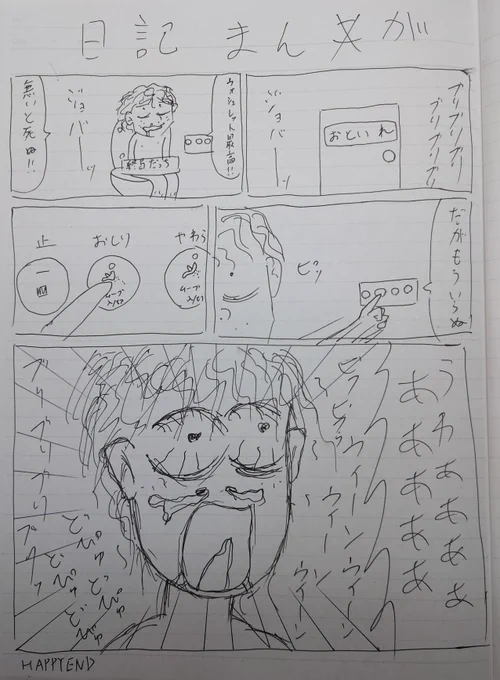 日記まんがが
ブリブリブリ
ブリブリブリ
おといれ
ジョバーーッ
ウォシュレット最高!!
ジョバーーッ
無いと死ぬ!!
だがもういらぬ
ピッ
やわら
ムーブ
おしり
ムーブ
止
うわぁぁぁぁぁ
ああああああ
ウィーンウィーン
ウィーン
ウィーン
ブリブリブリブリッ
どぴゅ
どぴゅ
どぴゅ
どぴゅ
HAPPYEND